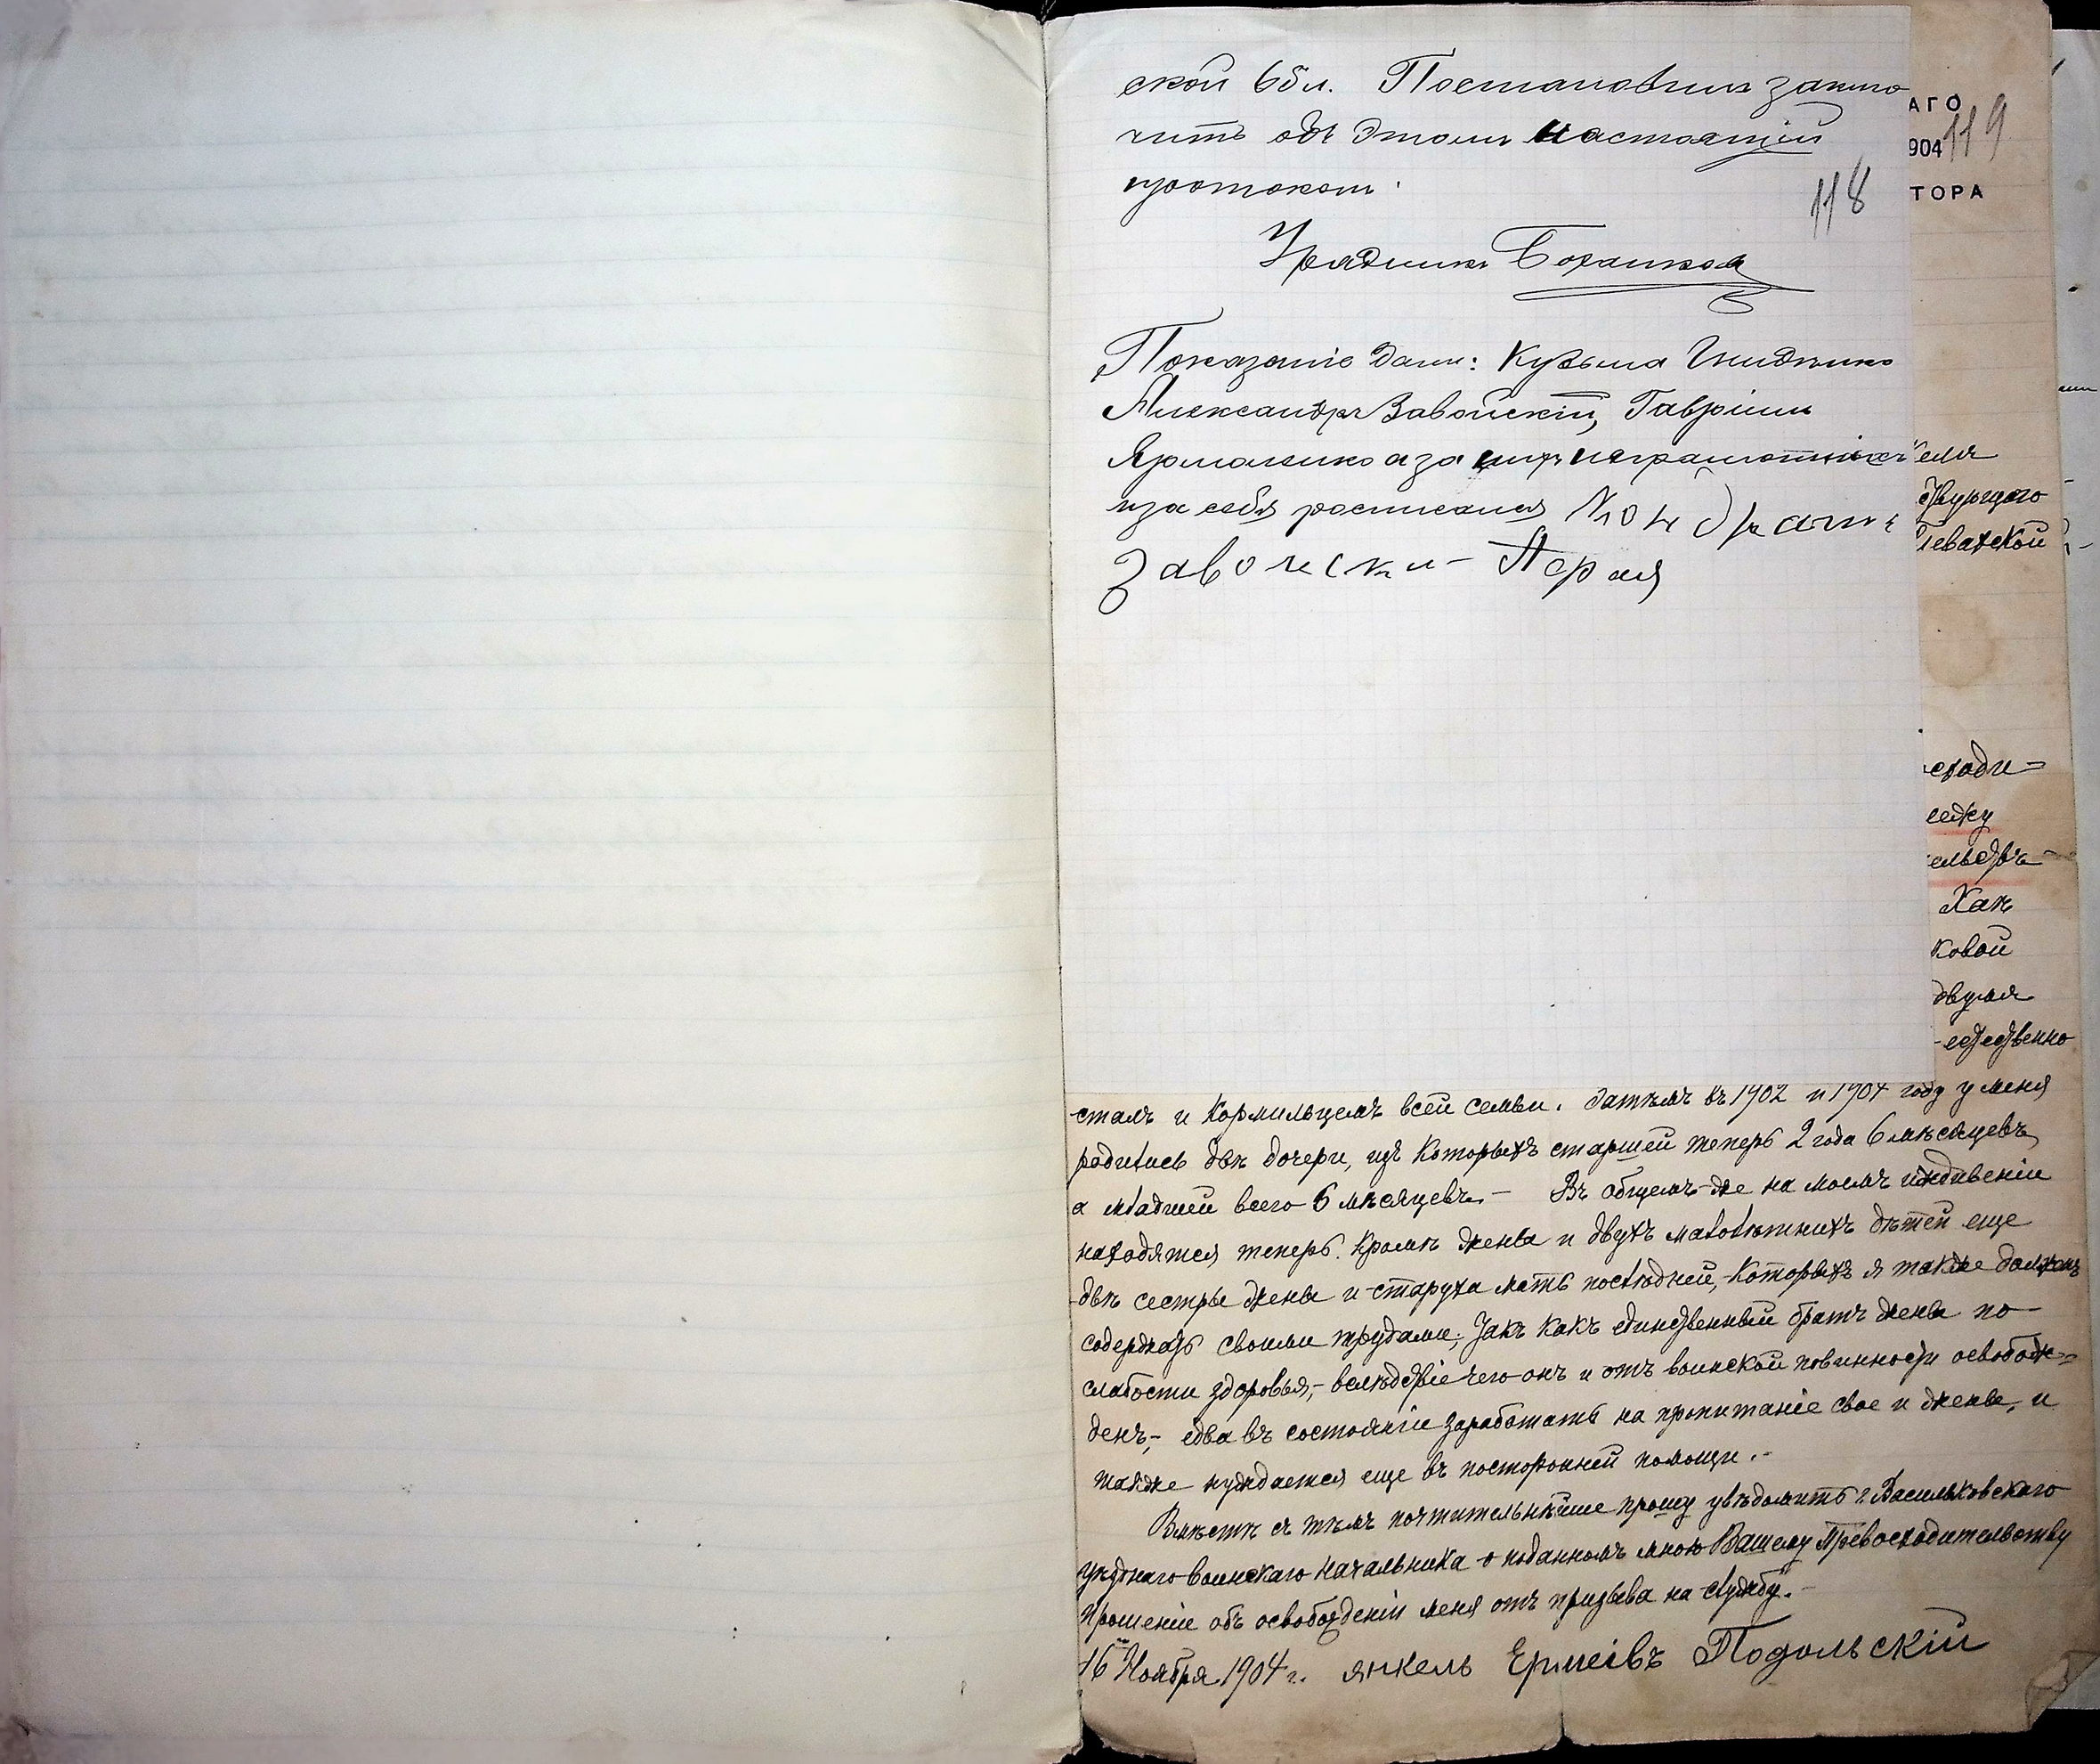 ской обл. Постановилъ заклю
чить объ этомъ настоящій
протоколъ.
118
Урядникъ
Показаніе дали: Кузьма
Александръ Завойскій, Гавріилъ
Ярмоленко а за ихъ неграмотныхъ
и за себя росписался
АГО
904
119
ТОРА
двурцого
сходи=
ковой
двумя
сталъ и кормильцемъ всей семьи. Затѣмъ въ 1902 и 1904 году у меня
родились двѣ дочери, изъ которыхъ старшей теперь 2 года 6 мѣсяцевъ,
а младшей всего 6 мѣсяцевъ.- Въ общемъ-же на моемъ иждивеніи
находятся теперь. кромѣ жены и двухъ малолѣтнихъ дѣтей еще
двѣ сестры жены и старуха мать послѣдней, которыхъ я также долженъ
содержать своими трудами; такъ какъ единственный братъ жены по
слабости здоровья,- вслѣдствіе чего онъ и отъ воинской повинности освобож=
денъ,- едва въ состояніи заработать на пропитаніе свое и жены, и
также нуждается еще въ посторонней помощи.-
Вмѣстѣ съ тѣмъ почтительнѣйше прошу увѣдомить г. Васильковскаго
уѣзднаго воинскаго начальника о поданномъ мною Вашему Превосходительству
прошеніе объ освобожденіи меня отъ призыва на службу.-
16 Ноября 1904 г. Янкель Подольскій